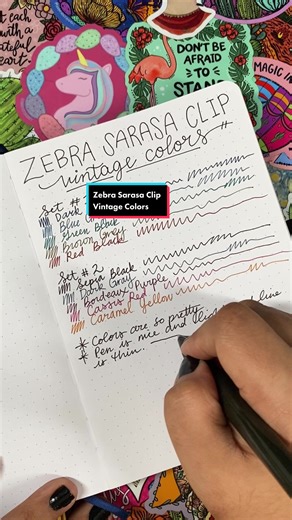 each with a
grateful
heart.
DON'T BE
AFRAID
TO
STAND
MAGIC IN
ZEBRA SARASA CLIP
vintage colors
Zebra Sarasa Clip
Vintage Colors
Set #
Dark
Blue
Green Black
Brown Grey
Red Black
Set #2
Sepia Black
Dark Gray
Bordeaux Purple
Cassis Red
Caramel Yellow
* Colors are so pretty
* Pen is nice and
line
is thin.